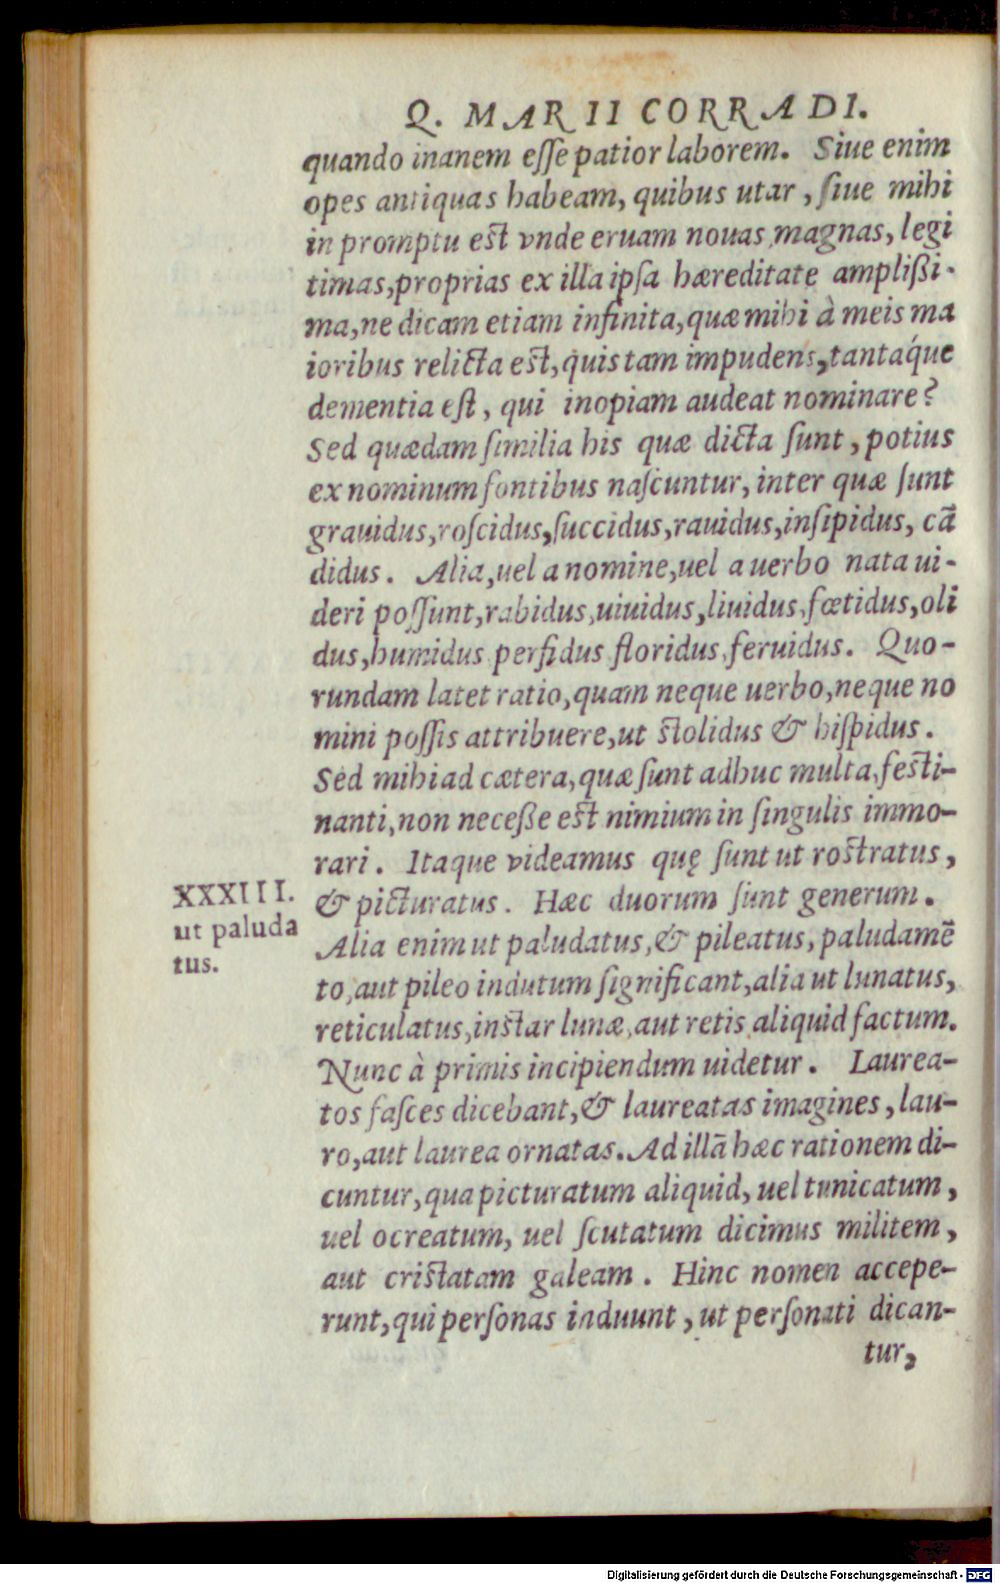 Q. MARII CORRADI.
quando inanem eſſe patior laborem. Siue enim
opes antiquas habeam, quibus utar, ſiue mihi
in promptu est vnde eruam nouas, magnas, legi
timas, proprias ex illa ipſa hæreditate amplißi-
ma, ne dicam etiam infinita, quæ mihi à meis ma
ioribus relicta est, quis tam impudens, tantáque
dementia eſt, qui inopiam audeat nominare?
Sed quædam ſimilia his quæ dicta ſunt, potius
ex nominum fontibus naſcuntur, inter quæ ſunt
grauidus, roſcidus, ſuccidus, rauidus, inſipidus, cā
didus. Alia, uel a nomine, uel a uerbo nata ui-
deri poſſunt, rabidus, uiuidus, liuidus, fœtidus, oli
dus, humidus perfidus floridus, feruidus. Quo-
rundam latet ratio, quam neque uerbo, neque no
mini poſſis attribuere, ut stolidus & hiſpidus.
Sed mihi ad cætera, quæ ſunt adhuc multa, festi-
nanti, non neceße est nimium in ſingulis immo-
rari. Itaque videamus quę ſunt ut rostratus,
& picturatus. Hæc duorum ſunt generum.
XXXIII.
ut paluda
tus.
Alia enim ut paludatus, & pileatus, paludamē
to, aut pileo indutum ſignificant, alia ut lunatus,
reticulatus, instar lunæ, aut retis aliquid factum.
Nunc à primis incipiendum uidetur. Laurea-
tos faſces dicebant, & laureatas imagines, lau-
ro, aut laurea ornatas. Ad illā hæc rationem di-
cuntur, qua picturatum aliquid, uel tunicatum,
uel ocreatum, uel ſcutatum dicimus militem,
aut cristatam galeam. Hinc nomen accepe-
runt, qui perſonas induunt, ut perſonati dican-
tur,
Digitalisierung gefördert durch die Deutsche Forschungsgemeinschaft - DFG